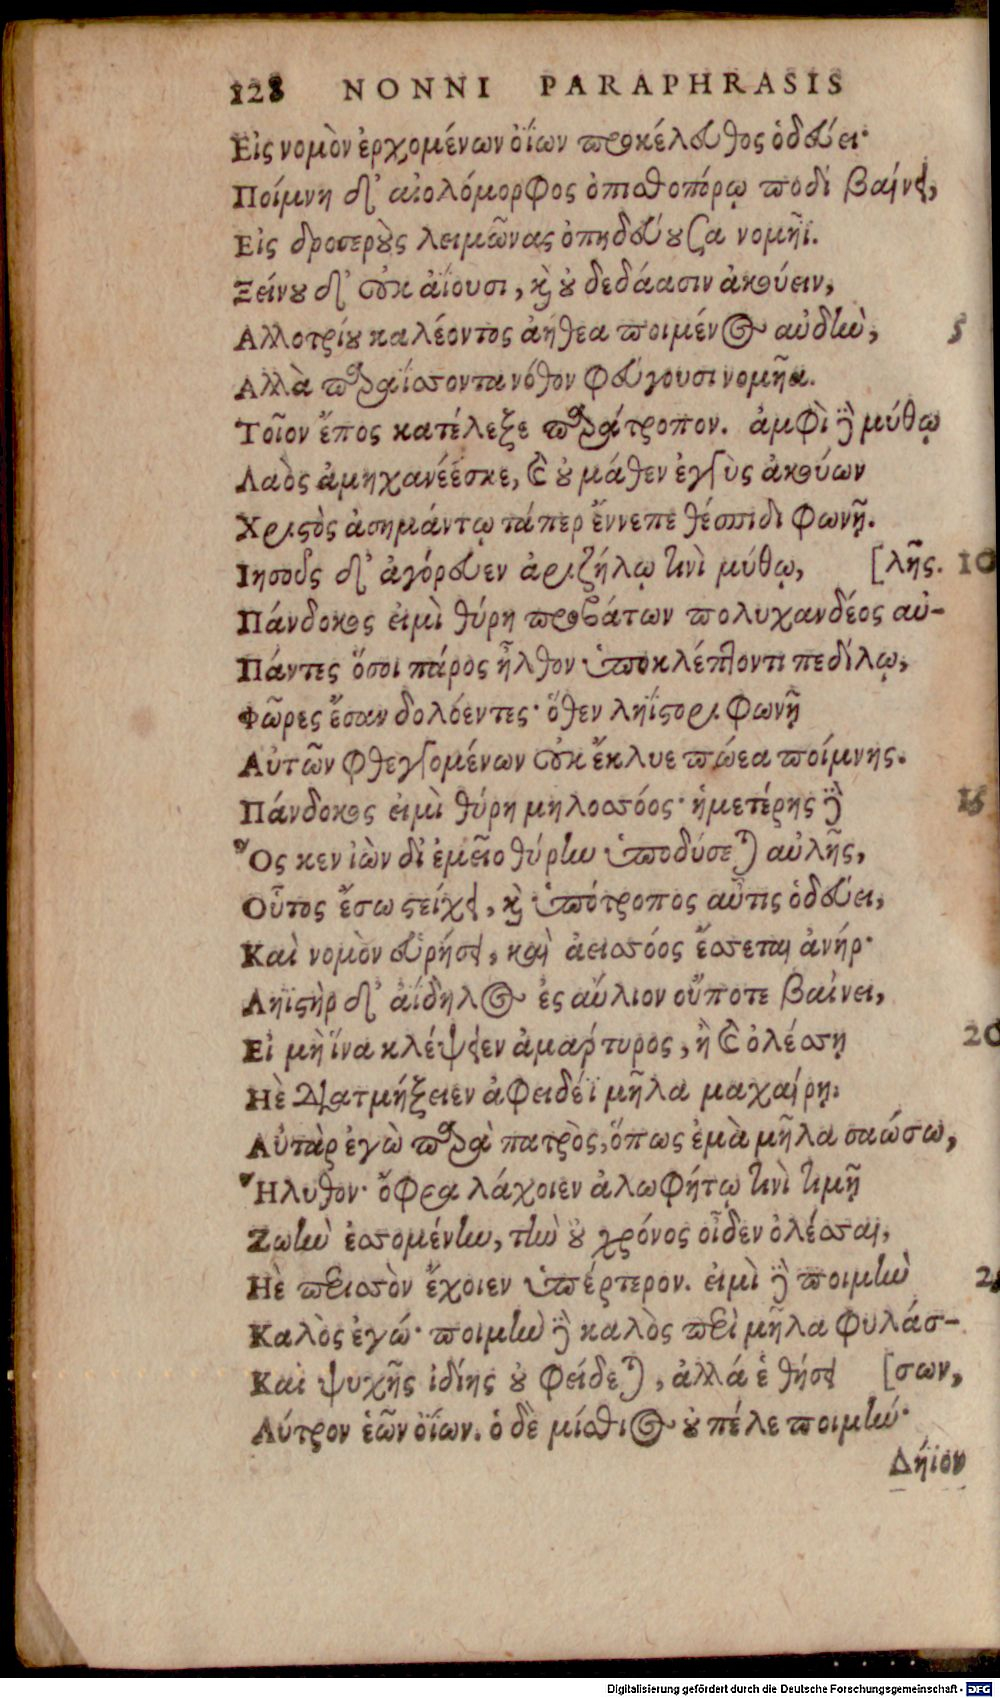 128 NONNI PARAPHRASIS
Εἰς νομὸν ἐρχομένων ὀΐων προκέλευθος ὁδεύει·
Ποίμνη δ' αἰολόμορφος ὀπισθοπόρῳ ποδὶ βαίνει,
Εἰς δροσεροὺς λειμῶνας ὀπηδεύουσα νομῆϊ.
Ξείνου δ' οὐκ ἀΐουσι, καὶ οὐ δεδάασιν ἀκούειν,
Αλλοτρίου καλέοντος ἀήθεα ποιμένος αὐδὴν, 5
Αλλὰ παραΐσσοντα νόθον φεύγουσι νομῆα.
Τοῖον ἔπος κατέλεξε παράτροπον. ἀμφὶ δὲ μύθῳ
Λαὸς ἀμηχανέεσκε, καὶ οὐ μάθεν ἐγγὺς ἀκούων
Χριστὸς ἀσημάντῳ τάπερ ἔννεπε θέσπιδι φωνῇ.
Ιησοῦς δ' ἀγόρευεν ἀριζήλῳ τινὶ μύθῳ, [λῆς. 10
Πάνδοκος εἰμὶ θύρη προβάτων πολυχανδέος αὐ-
Πάντες ὅσοι πάρος ἦλθον ὑποκλέπτοντι πεδίλῳ,
Φῶρες ἔσαν δολόεντες· ὅθεν ληΐστορι φωνῇ
Αὐτῶν φθεγγομένων οὐκ ἔκλυε πώεα ποίμνης.
Πάνδοκος εἰμὶ θύρη μηλοσσόος· ἡμετέρης δὲ 15
Ὅς κεν ἰὼν δι' ἐμεῖο θύρην ὑποδύσεται αὐλῆς,
Οὗτος ἔσω στείχει, καὶ ὑπότροπος αὖτις ὁδεύει,
Καὶ νομὸν εὑρήσει, καὶ ἀεισσόος ἔσσεται ἀνήρ·
Ληϊστὴρ δ' ἀΐδηλος ἐς αὔλιον οὔποτε βαίνει,
Εἰ μὴ ἵνα κλέψειεν ἀμάρτυρος, ἢ καὶ ὀλέσσῃ 20
Ηὲ διατμήξειεν ἀφειδέϊ μῆλα μαχαίρῃ.
Αὐτὰρ ἐγὼ παρὰ πατρὸς, ὅπως ἐμὰ μῆλα σαώσω,
Ἤλυθον· ὄφρα λάχοιεν ἀλωφήτῳ τινὶ τιμῇ
Ζωὴν ἐσσομένην, τὴν οὐ χρόνος οἶδεν ὀλέσσαι,
Ηὲ περισσὸν ἔχοιεν ὑπέρτερον. εἰμὶ δὲ ποιμὴν 25
Καλὸς ἐγώ· ποιμὴν δὲ καλὸς περὶ μῆλα φυλάσ-
Καὶ ψυχῆς ἰδίης οὐ φείδεται, ἀλλά ἑ θήσει [σων,
Λύτρον ἑῶν ὀΐων. ὁ δὲ μίσθιος οὐ πέλε ποιμήν·
Δήϊον
Digitalisierung gefördert durch die Deutsche Forschungsgemeinschaft - DFG